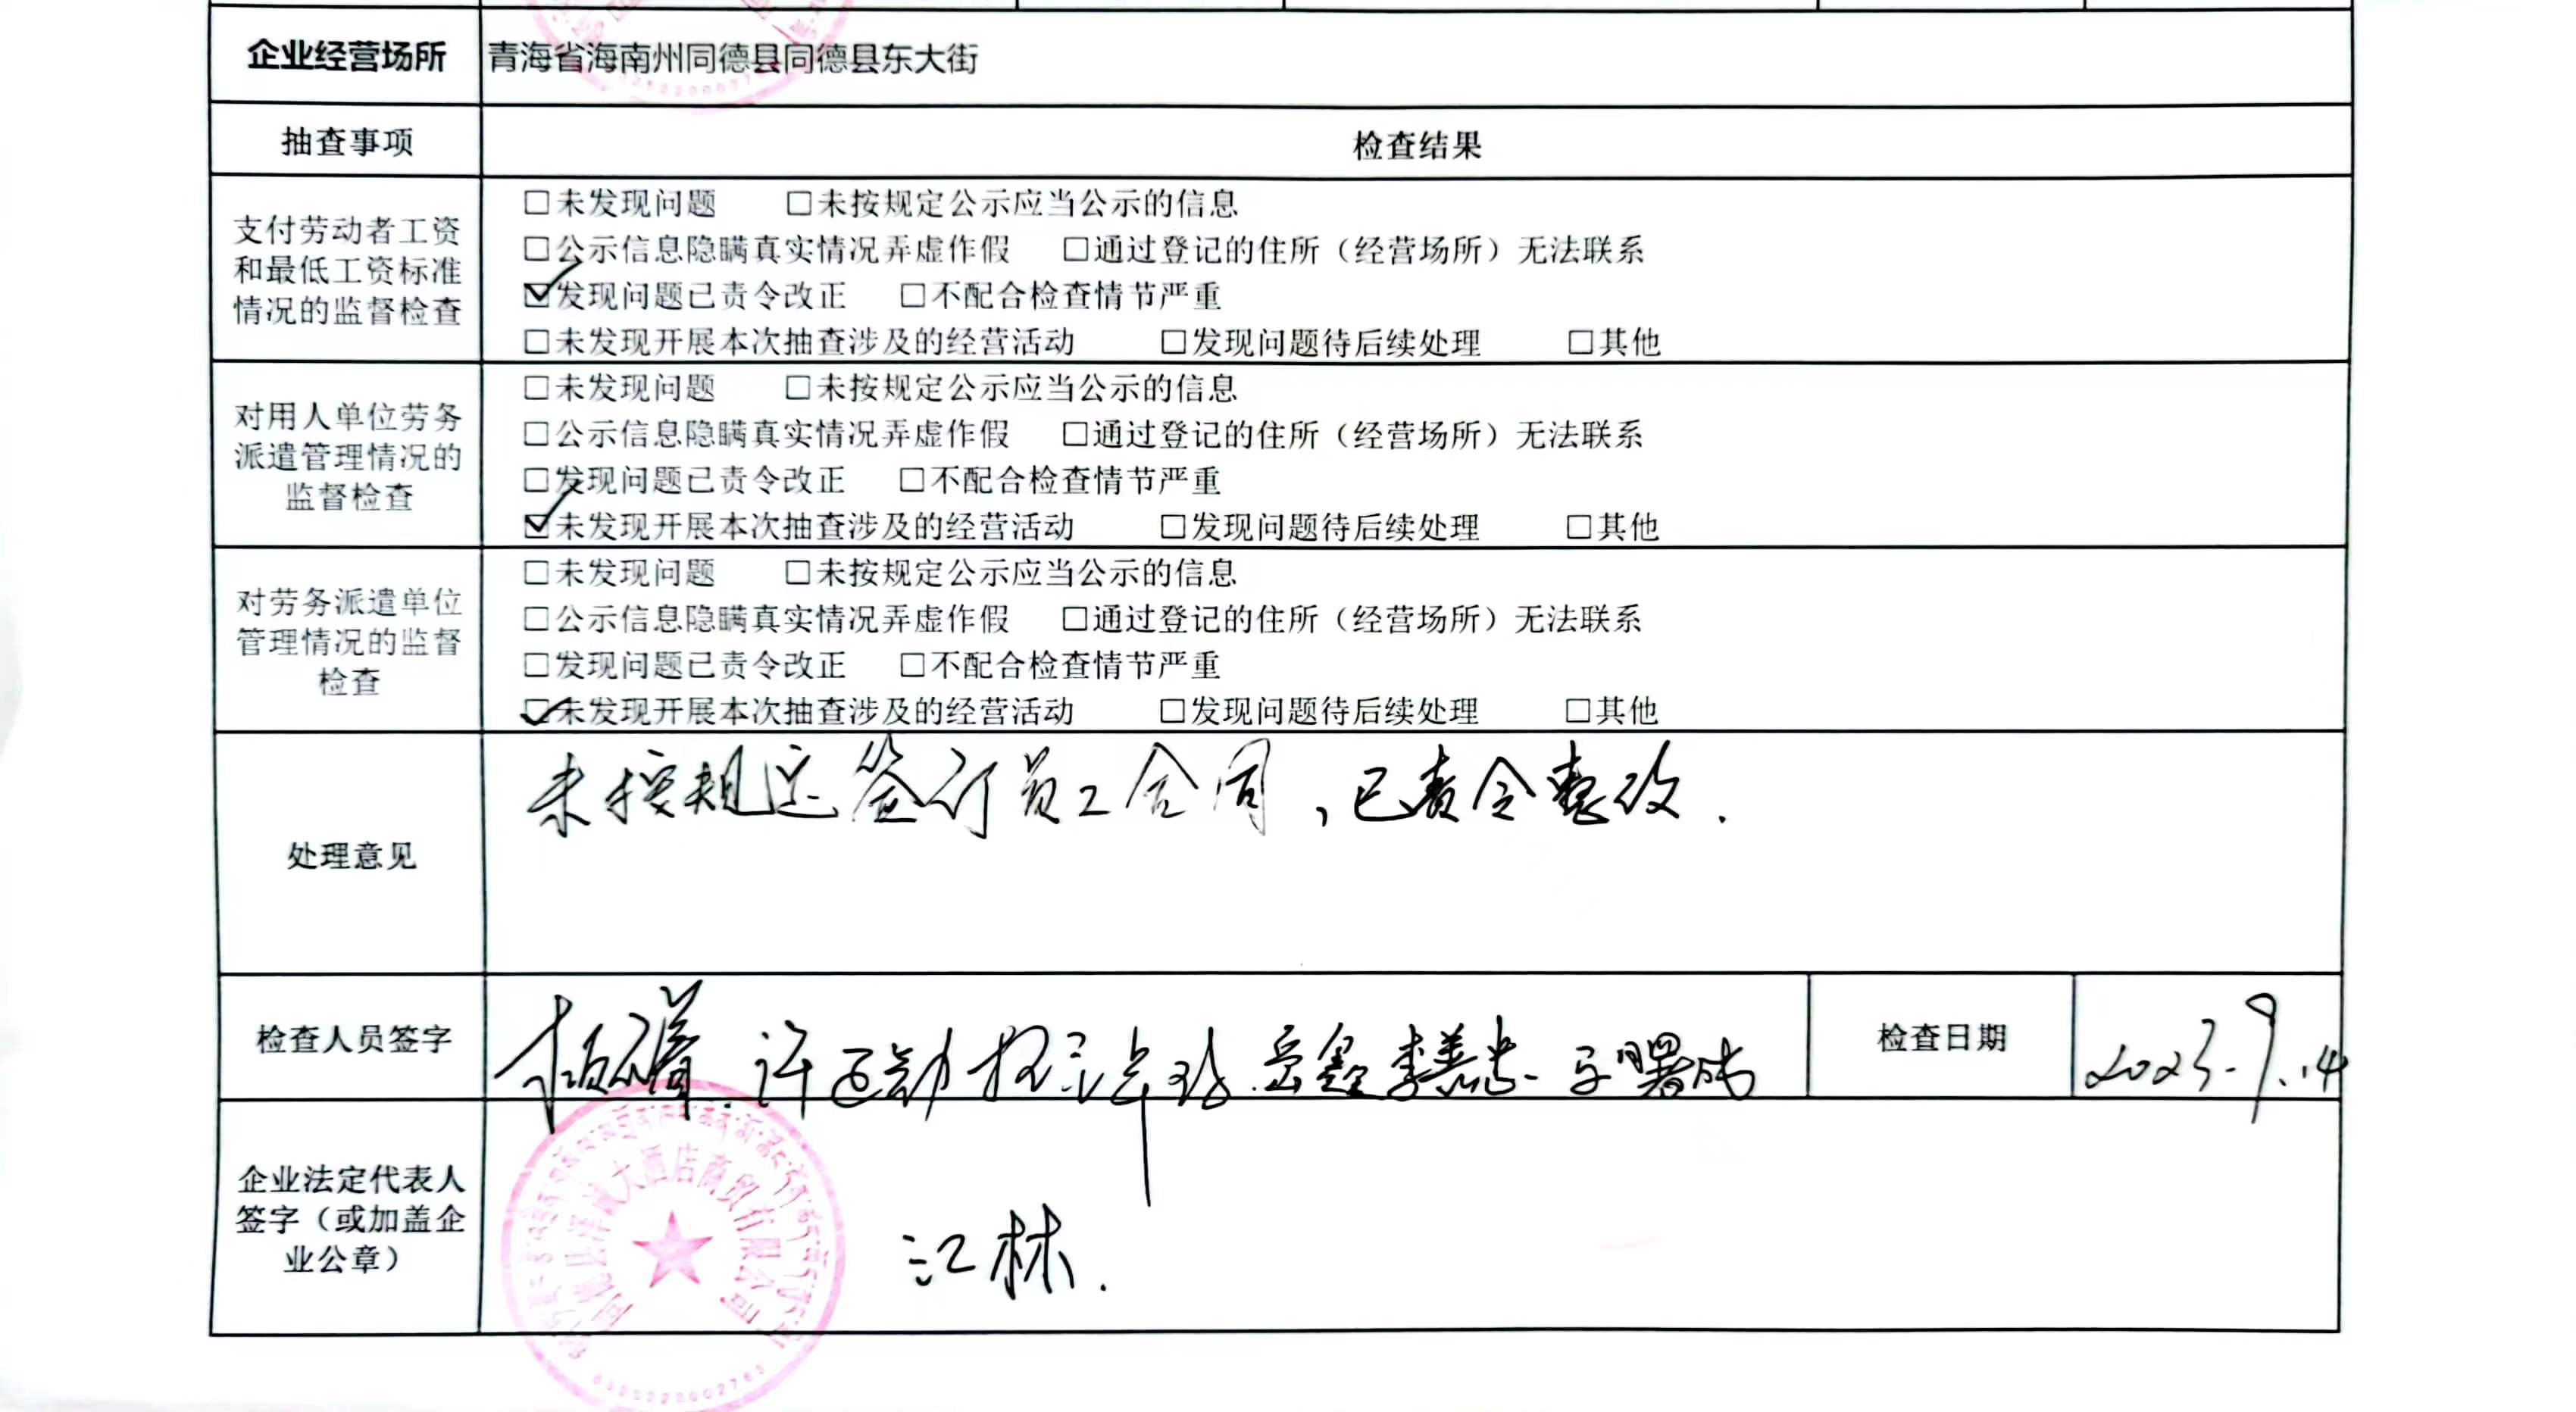 企业经营场所 青海省海南州同德县同德县东大街
抽查事项 检查结果
支付劳动者工资
和最低工资标准
情况的监督检查
□未发现问题 □未按规定公示应当公示的信息
□公示信息隐瞒真实情况弄虚作假 □通过登记的住所（经营场所）无法联系
☑发现问题已责令改正 □不配合检查情节严重
□未发现开展本次抽查涉及的经营活动 □发现问题待后续处理 □其他
对用人单位劳务
派遣管理情况的
监督检查
□未发现问题 □未按规定公示应当公示的信息
□公示信息隐瞒真实情况弄虚作假 □通过登记的住所（经营场所）无法联系
□发现问题已责令改正 □不配合检查情节严重
☑未发现开展本次抽查涉及的经营活动 □发现问题待后续处理 □其他
对劳务派遣单位
管理情况的监督
检查
□未发现问题 □未按规定公示应当公示的信息
□公示信息隐瞒真实情况弄虚作假 □通过登记的住所（经营场所）无法联系
□发现问题已责令改正 □不配合检查情节严重
☑未发现开展本次抽查涉及的经营活动 □发现问题待后续处理 □其他
处理意见
未按规定签订员工合同，已责令整改.
检查人员签字 检查日期 2023.9.14
企业法定代表人
签字（或加盖企
业公章）
江林.